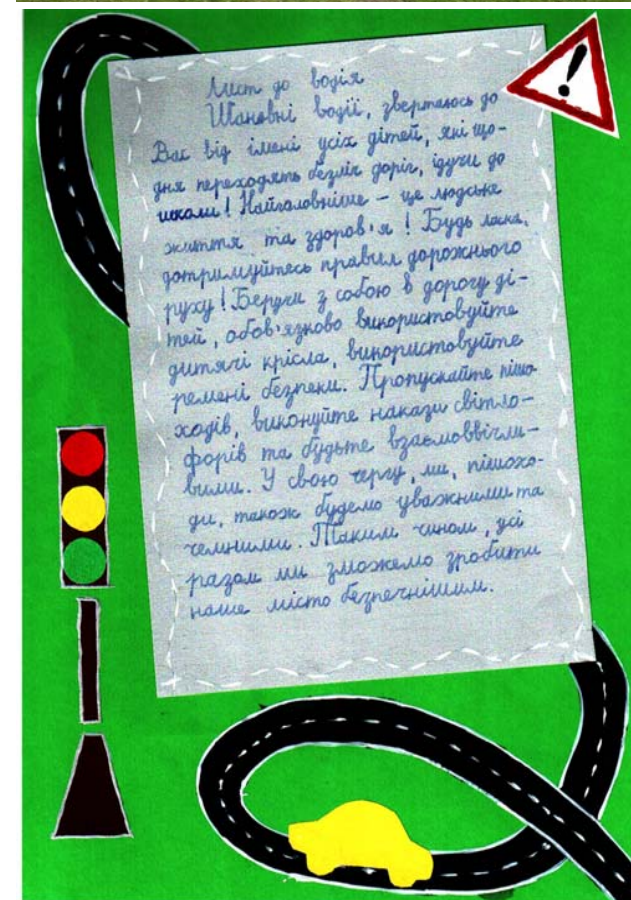 Лист до водія
Шановні водії, звертаюсь до
Вас від імені усіх дітей, які що-
дня переходять безліч доріг, ідучи до
школи! Найголовніше – це людське
життя та здоров'я! Будь ласка,
дотримуйтесь правил дорожнього
руху! Беручи з собою в дорогу ді-
тей, обов'язково використовуйте
дитячі крісла, використовуйте
ремені безпеки. Пропускайте пішо-
ходів, виконуйте накази світло-
форів та будьте взаємоввічли-
вими. У свою чергу, ми, пішохо-
ди, також будемо уважними та
чемними. Таким чином, усі
разом ми зможемо зробити
наше місто безпечнішим.